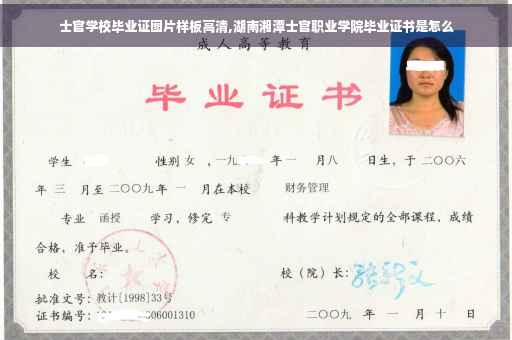 士官学校毕业证图片样板高清,湖南湘潭士官职业学院毕业证书是怎么
成人高等教育
毕业证书
学生 性别 女 ,一九 年一 月八 日生,于二〇〇六
年 三 月至二〇〇九年 一 月在本校 财务管理
专业 函授 学习,修完 专 科教学计划规定的全部课程,成绩
合格,准予毕业。
校 名: 校(院)长:
批准文号:教计[1998]33号
证书编号: 06001310 二〇〇九 年 一 月 十 日